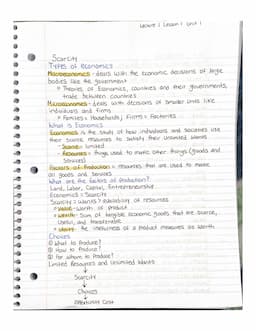 Lecture 1 Lesson 1 Unit 1
Scarcity
Types of Economics
Macroeconomics - deals with the economic decisions of large
bodies like the government
Theories of Economics, countries and their governments,
trade between countries
Microeconomics - deals with decisions of smaller units like
individuals and firms
Families = Households, Firms = Factories
What is Economics
Economics is the study of how individuals and societies use
their scarce resources to satisfy their unlimited wants
- Scarce = limited
- Resources = things used to make other things (goods and
services)
Factors of Production = resources that are used to make
all goods and services
What are the factors of production?
Land, Labor, Capital, Entrepreneurship
Economics = Scarcity
Scarcity = Wants > availability of resources
Value - Worth of product
Wealth - Sum of tangible economic goods that are scarce,
useful, and transferable
Utility - the usefulness of a product measures its worth
Choices
① What to Produce?
② How to Produce?
③ For whom to Produce?
Limited Resources and Unlimited Wants
↓
Scarcity
↓
Choices
↓
Opportunity Cost